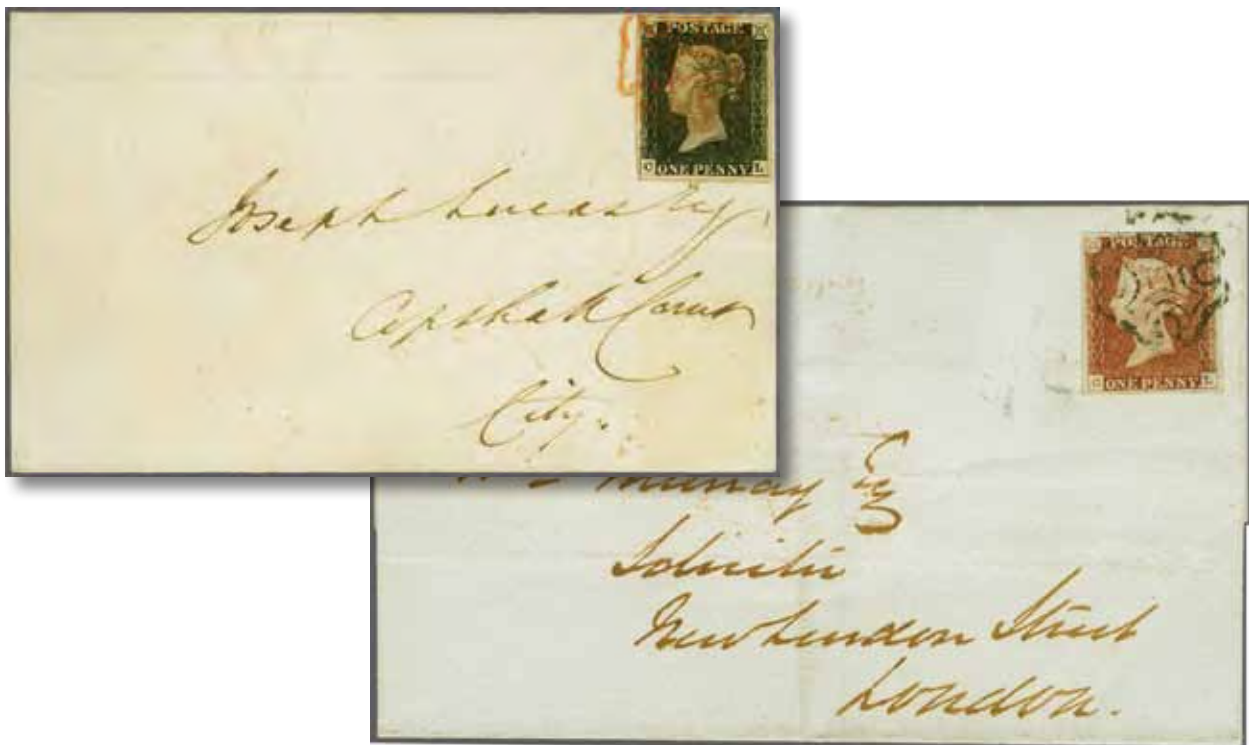 POSTAGE
C ONE PENNY L
Joseph Lucas Esq
Copthall Court
City.
POSTAGE
ONE PENNY L
Murray Esq
Solicitor
New London Street
London.